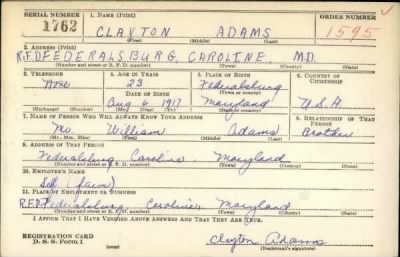 SERIAL NUMBER 1. NAME (Print) ORDER NUMBER
1762 CLAYTON ADAMS 1595
(First) (Middle) (Last)
2. ADDRESS (Print)
R.F.D FEDERALSBURG, CAROLINE, M.D.
(Number and street or R. F. D. number) (Town) (County) (State)
3. TELEPHONE 4. AGE IN YEARS 5. PLACE OF BIRTH 6. COUNTRY OF CITIZENSHIP
23 Federalsburg
DATE OF BIRTH (Town or county)
Aug 6, 1917 Maryland U.S.A
(Exchange) (Number) (Mo.) (Day) (Yr.) (State or country)
7. NAME OF PERSON WHO WILL ALWAYS KNOW YOUR ADDRESS 8. RELATIONSHIP OF THAT PERSON
Mr William Adams Brother
(Mr., Mrs., Miss) (First) (Middle) (Last)
9. ADDRESS OF THAT PERSON
Federalsburg Caroline Maryland
(Number and street or R. F. D. number) (Town) (County) (State)
10. EMPLOYER'S NAME
Self (farm)
11. PLACE OF EMPLOYMENT OR BUSINESS
R.F.D Federalsburg, Caroline, Maryland
(Number and street or R. F. D. number) (Town) (County) (State)
I AFFIRM THAT I HAVE VERIFIED ABOVE ANSWERS AND THAT THEY ARE TRUE.
REGISTRATION CARD
D. S. S. Form 1 (over) Clayton Adams
(Registrant's signature)